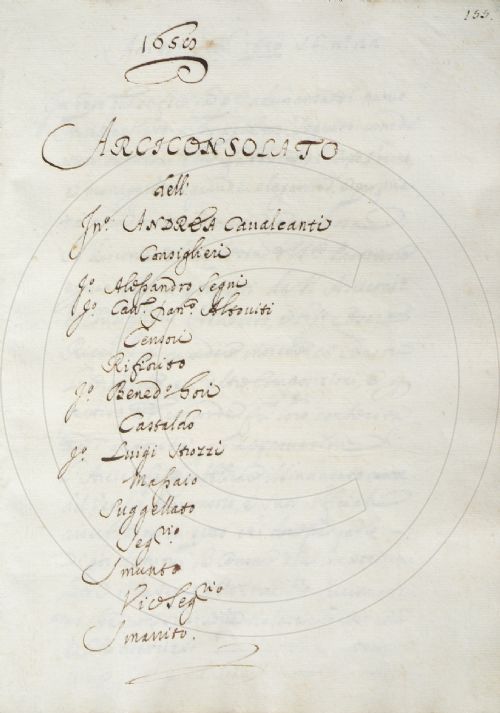 155.
1650
ARCICONSOLATO
dell'
Jn.º ANDREA Cavalcanti
Consiglieri
Jº Alessandro Segni
Jº Cav.r Gan.º Altoviti
Censori
Rifiorito
Jº Bened.º Gori
Castaldo
Jº Luigi Strozzi
Massaio
Suggellato
Seg.rio
Smunto
ViceSeg.rio
Smarrito.